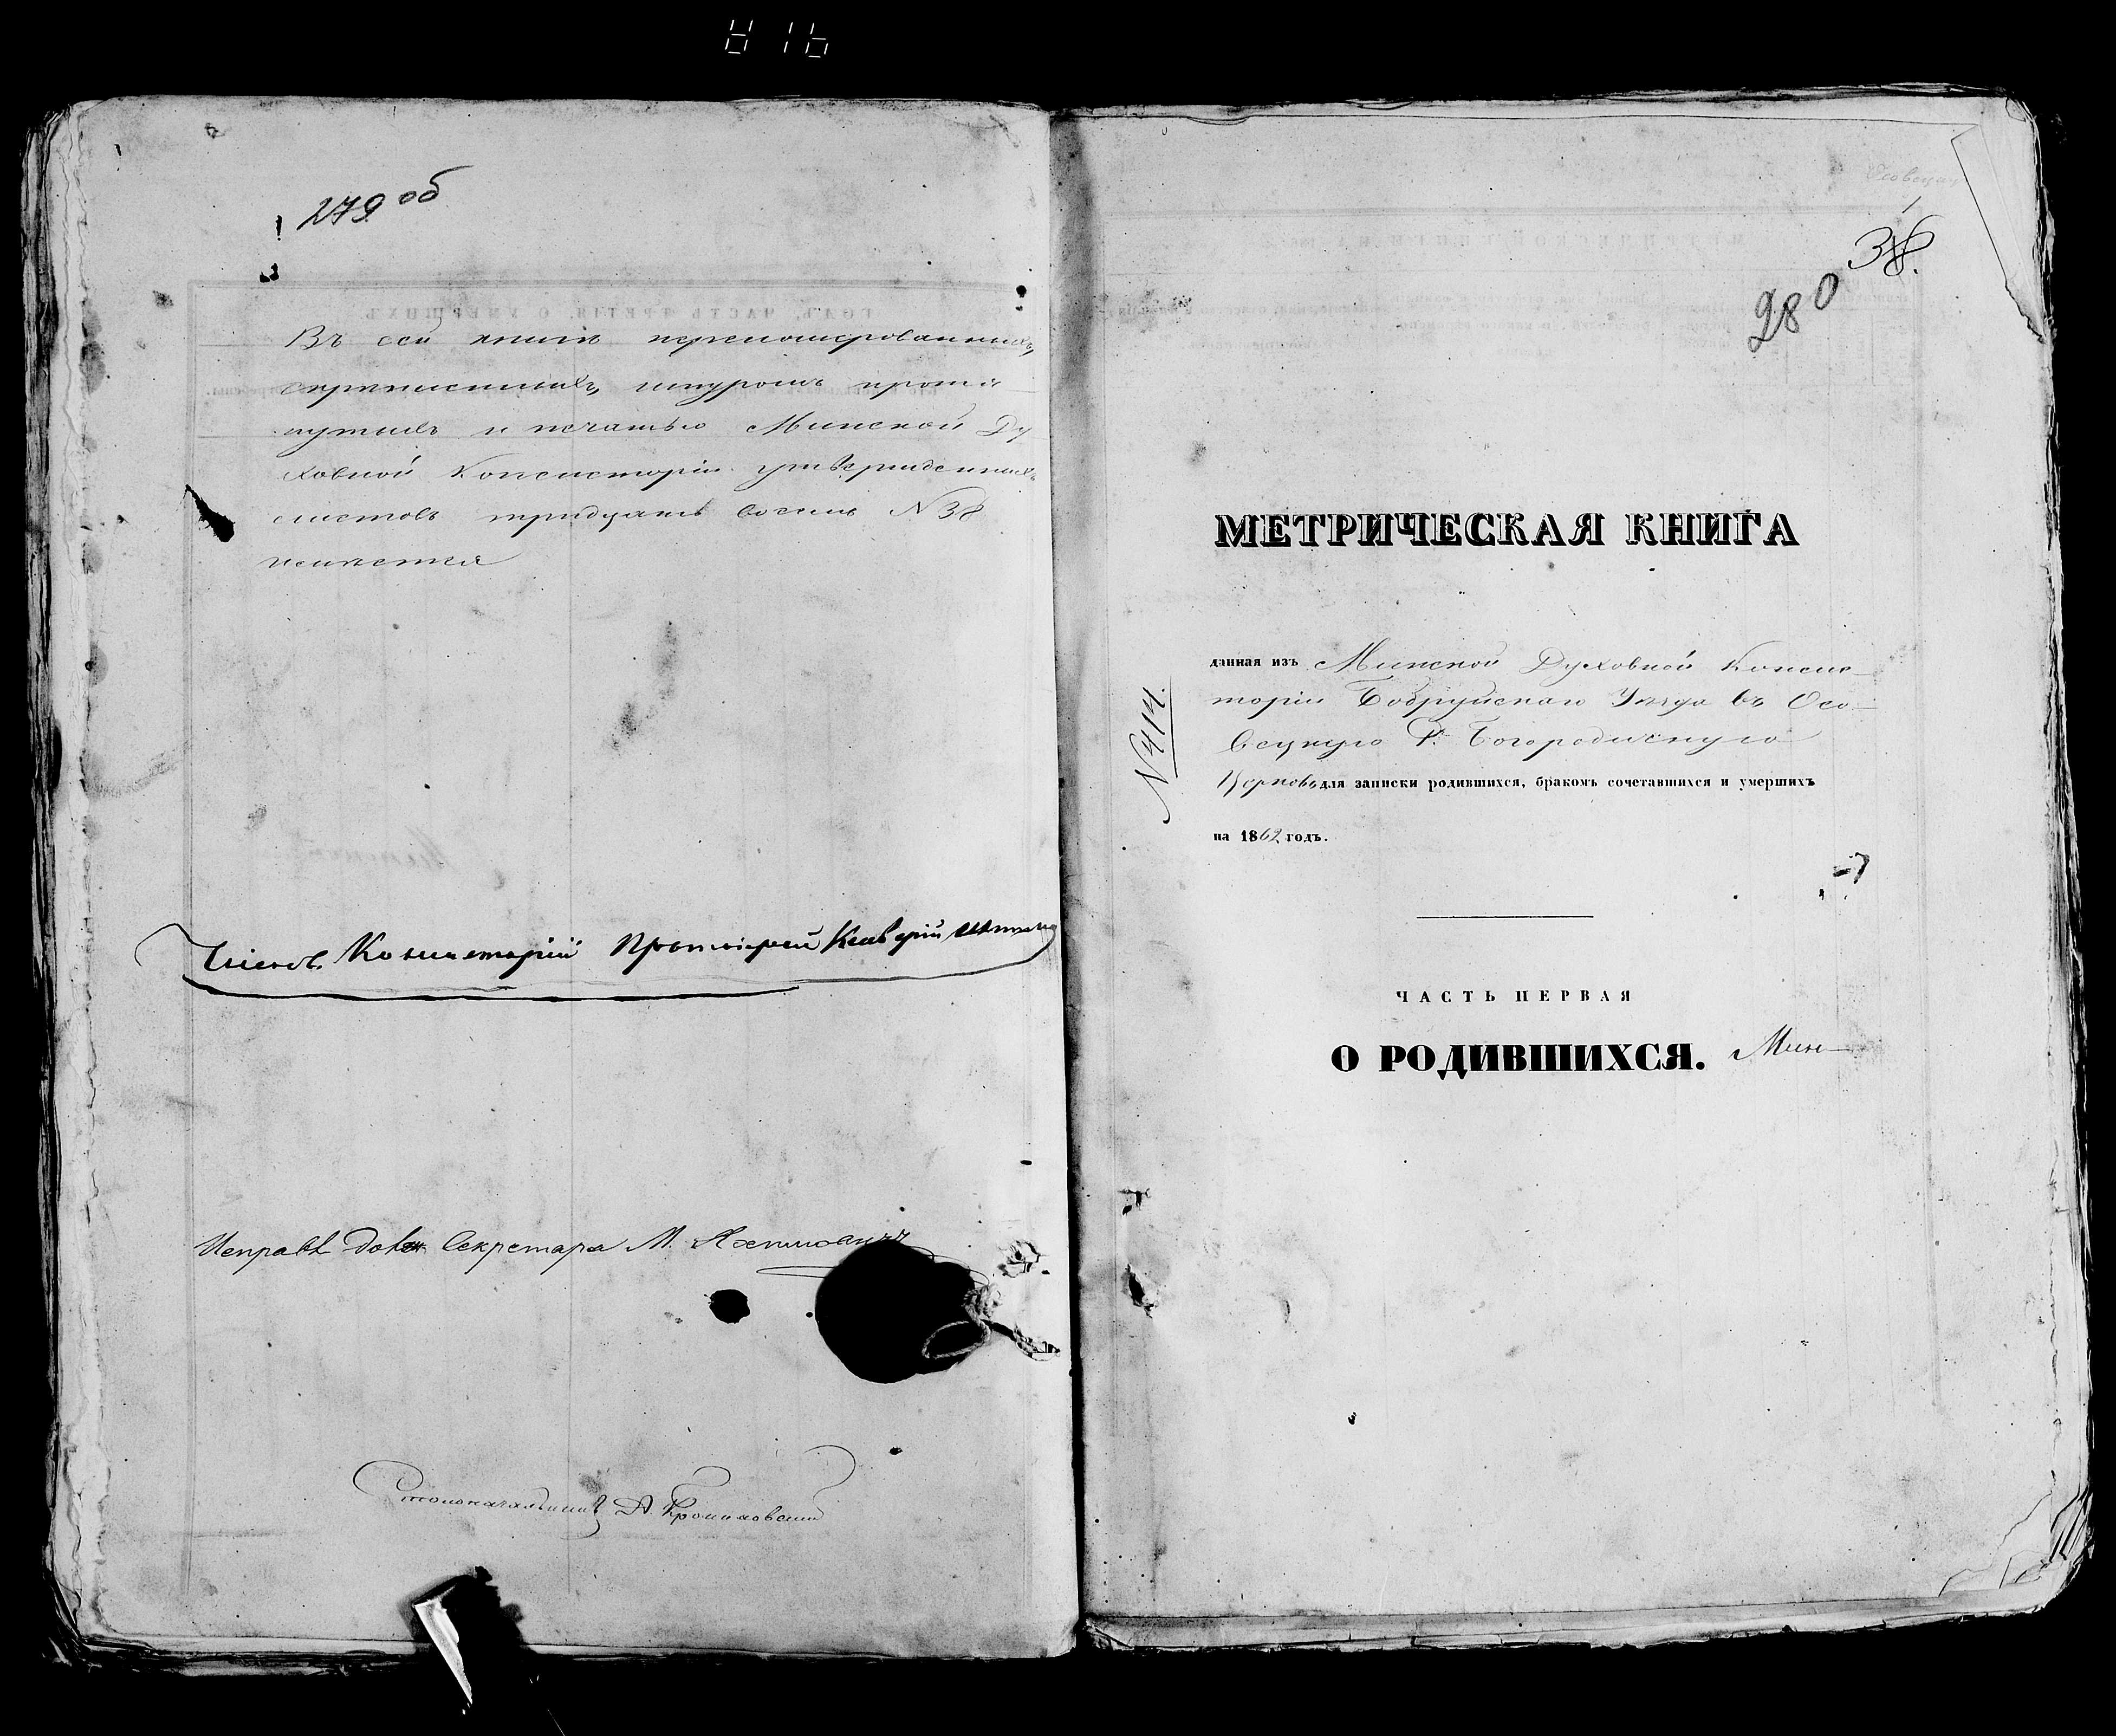 279 об
Въ сей книгѣ перенумерованныхъ,
скрѣпленныхъ, шнуромъ протя
нутыхъ и печатью Минской Ду
ховной Консисторіи утвержденныхъ
листовъ тридцать восемь N 38
имѣется
Членъ Консисторіи Протоіерей
Исправл. Должн. Секретаря М.
Столоначальникъ А.
38.
280
МЕТРИЧЕСКАЯ КНИГА
N 414.
данная изъ Минской Духовной Консис
торіи Бобруйскаго Уѣзда въ Осо
вецкую Р. Богородичную
Церковь для записки родившихся, бракомъ сочетавшихся и умершихъ
на 1862 годъ.
ЧАСТЬ ПЕРВАЯ
О РОДИВШИХСЯ. Мин